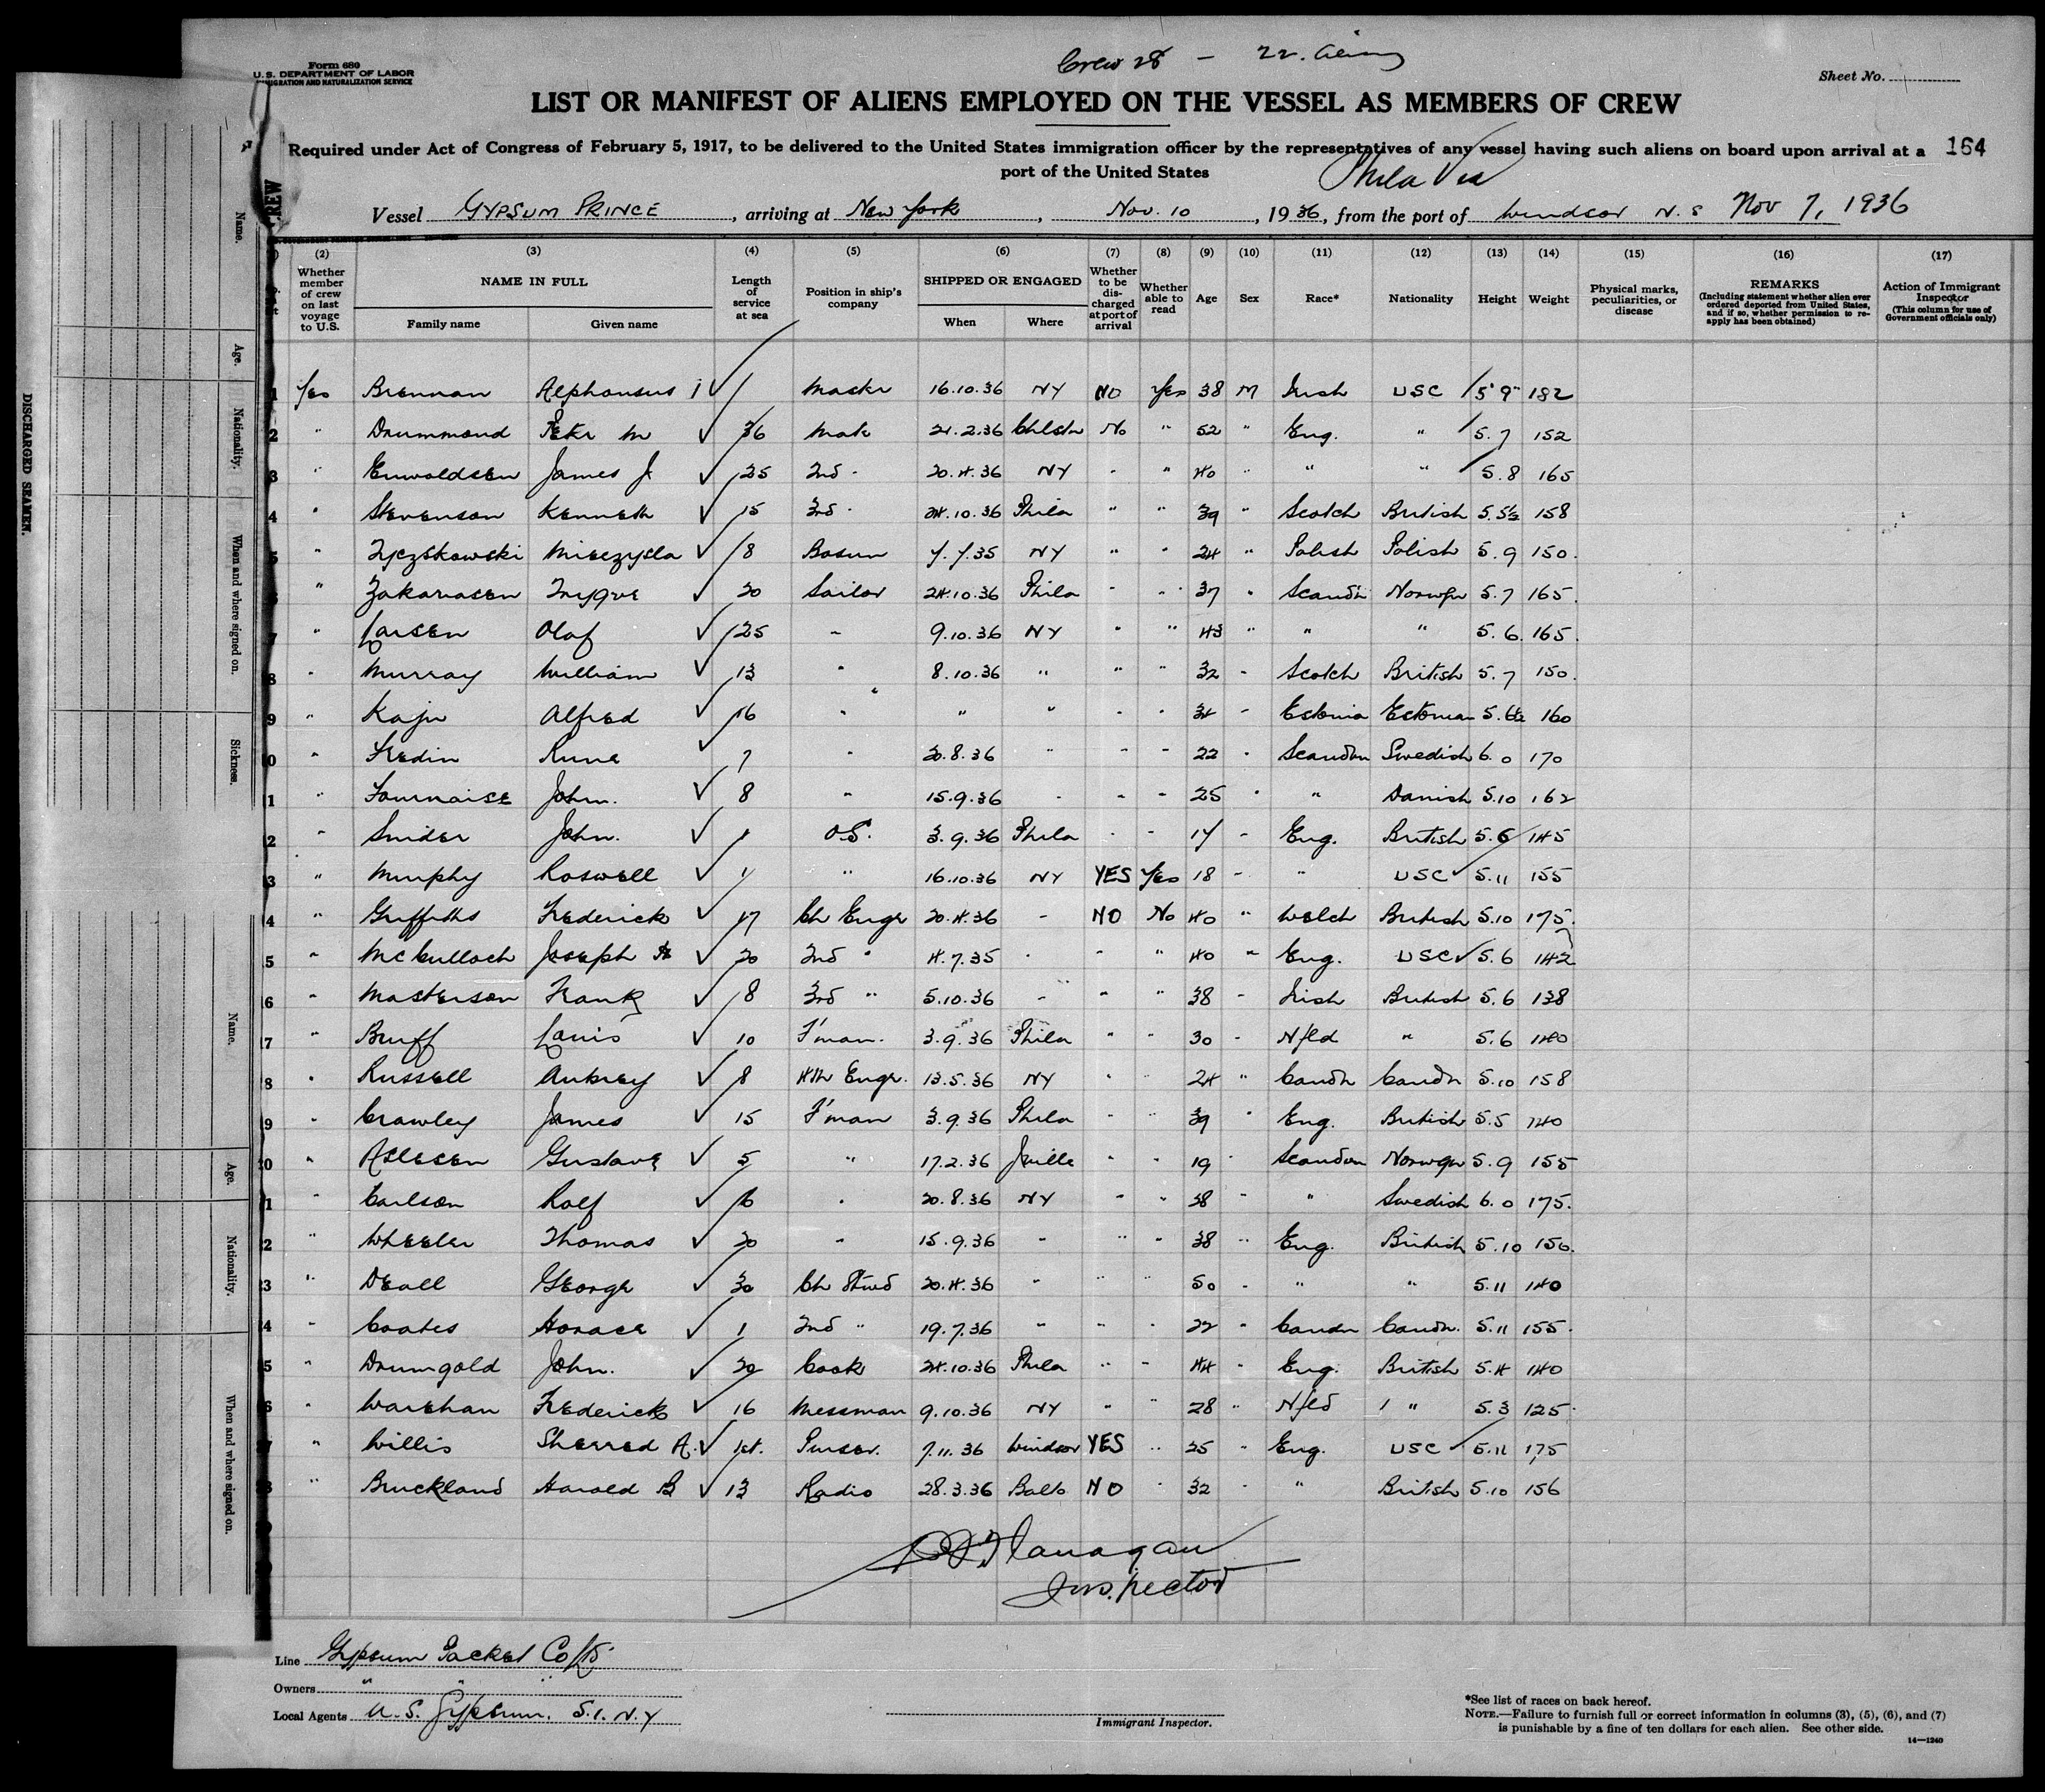 Crew 28 – 22
Form 680
U.S. DEPARTMENT OF LABOR
IMMIGRATION AND NATURALIZATION SERVICE
Sheet No.
LIST OR MANIFEST OF ALIENS EMPLOYED ON THE VESSEL AS MEMBERS OF CREW
Required under Act of Congress of February 5, 1917, to be delivered to the United States immigration officer by the representatives of any vessel having such aliens on board upon arrival at a 164
port of the United States
Phila Via
Vessel GYPSUM PRINCE, arriving at New York, Nov. 10, 1936, from the port of Windsor N.S Nov 7, 1936
(2) (3) (4) (5) (6) (7) (8) (9) (10) (11) (12) (13) (14) (15) (16) (17)
Whether member of crew on last voyage to U.S. NAME IN FULL Family name Given name Length of service at sea Position in ship's company SHIPPED OR ENGAGED When Where Whether to be discharged at port of arrival Whether able to read Age Sex Race* Nationality Height Weight Physical marks, peculiarities, or disease REMARKS (Including statement whether alien ever ordered deported from United States, and if so, whether permission to re-apply has been obtained) Action of Immigrant Inspector (This column for use of Government officials only)
1 Yes Brennan Alphonsus ✓ Master 16.10.36 NY NO Yes 38 M Irish USC 5'9" 182
2 " Drummond Peter M ✓ 36 Mate 21.2.36 No " 52 " Eng. " 5.7 152
3 " Enwoldsen James J. ✓ 25 2nd - 20.4.36 NY - " 40 " " " 5.8 165
4 " Stevenson Kenneth ✓ 15 3rd - 24.10.36 Phila " " 39 " Scotch British 5.5½ 158
5 " Mieczysla ✓ 8 Bosun 7.7.35 NY " " 24 " Polish Polish 5.9 150
6 " Zakariasen Trygve ✓ 20 Sailor 24.10.36 Phila - " 37 " Scandn Norwgn 5.7 165
7 " Larsen Olaf ✓ 25 - 9.10.36 NY " " 43 " " " 5.6 165
8 " Murray William ✓ 13 " 8.10.36 " " " 32 - Scotch British 5.7 150
9 " Kaju Alfred ✓ 16 " " " - - 34 - Estonia Estonian 5.6½ 160
0 " Fredin Rune ✓ 7 " 20.8.36 " - - 22 - Scandn Swedish 6.0 170
1 " Fournaise John. ✓ 8 " 15.9.36 - - - 25 " " Danish 5.10 162
2 " Snider John. ✓ 1 O.S. 3.9.36 Phila - - 17 - Eng. British 5.6 145
3 " Murphy Roswell ✓ 1 " 16.10.36 NY YES Yes 18 - " USC 5.11 155
4 " Griffiths Frederick ✓ 17 Ch Engr 20.4.36 - NO No 40 " Welch British 5.10 175
5 " McCulloch Joseph A ✓ 20 2nd " 4.7.35 - - " 40 " Eng. USC 5.6 142
6 " Masterson Frank ✓ 8 3rd " 5.10.36 - " " 38 - Irish British 5.6 138
7 " Bruff Louis ✓ 10 F'man. 3.9.36 Phila " " 30 - Nfld " 5.6 140
8 " Russell Aubrey ✓ 8 4th Engr. 13.5.36 NY " " 24 " Candn Candn 5.10 158
9 " Crawley James ✓ 15 F'man 3.9.36 Phila " " 39 " Eng. British 5.5 140
0 " Gustave ✓ 5 " 17.2.36 Jville " " 19 " Scandn Norwgn 5.9 155
1 " Carlson Rolf ✓ 16 " 20.8.36 NY " " 38 - " Swedish 6.0 175
2 " Wheeler Thomas ✓ 20 " 15.9.36 " " " 38 " Eng. British 5.10 150
3 " Deall George ✓ 30 Ch Stwd 20.4.36 " " " 50 - " " 5.11 140
4 " Coates Horace ✓ 1 2nd " 19.7.36 " " " 22 " Candn Candn. 5.11 155
5 " Drumgold John. ✓ 20 Cook 24.10.36 Phila " - 44 - Eng. British 5.4 140
6 " Warehan Frederick ✓ 16 Messman 9.10.36 NY " " 28 " Nfld " 5.3 125
7 " Willis Sherred A. ✓ 1st. Purser. 7.11.36 Windsor YES " 25 " Eng. USC 5.11 175
8 " Bruckland Harold B ✓ 13 Radio 28.3.36 Balto NO " 32 - " British 5.10 156
Flanagan
Inspector
Line Gypsum Packet Co Ltd
Owners " " "
Local Agents U.S. Gypsum. S.I. N.Y
Immigrant Inspector.
*See list of races on back hereof.
NOTE.—Failure to furnish full or correct information in columns (3), (5), (6), and (7)
is punishable by a fine of ten dollars for each alien. See other side.
14—1240
DISCHARGED SEAMEN.
Name.
Age.
Nationality.
When and where signed on.
Sickness.
Name.
Age.
Nationality.
When and where signed on.